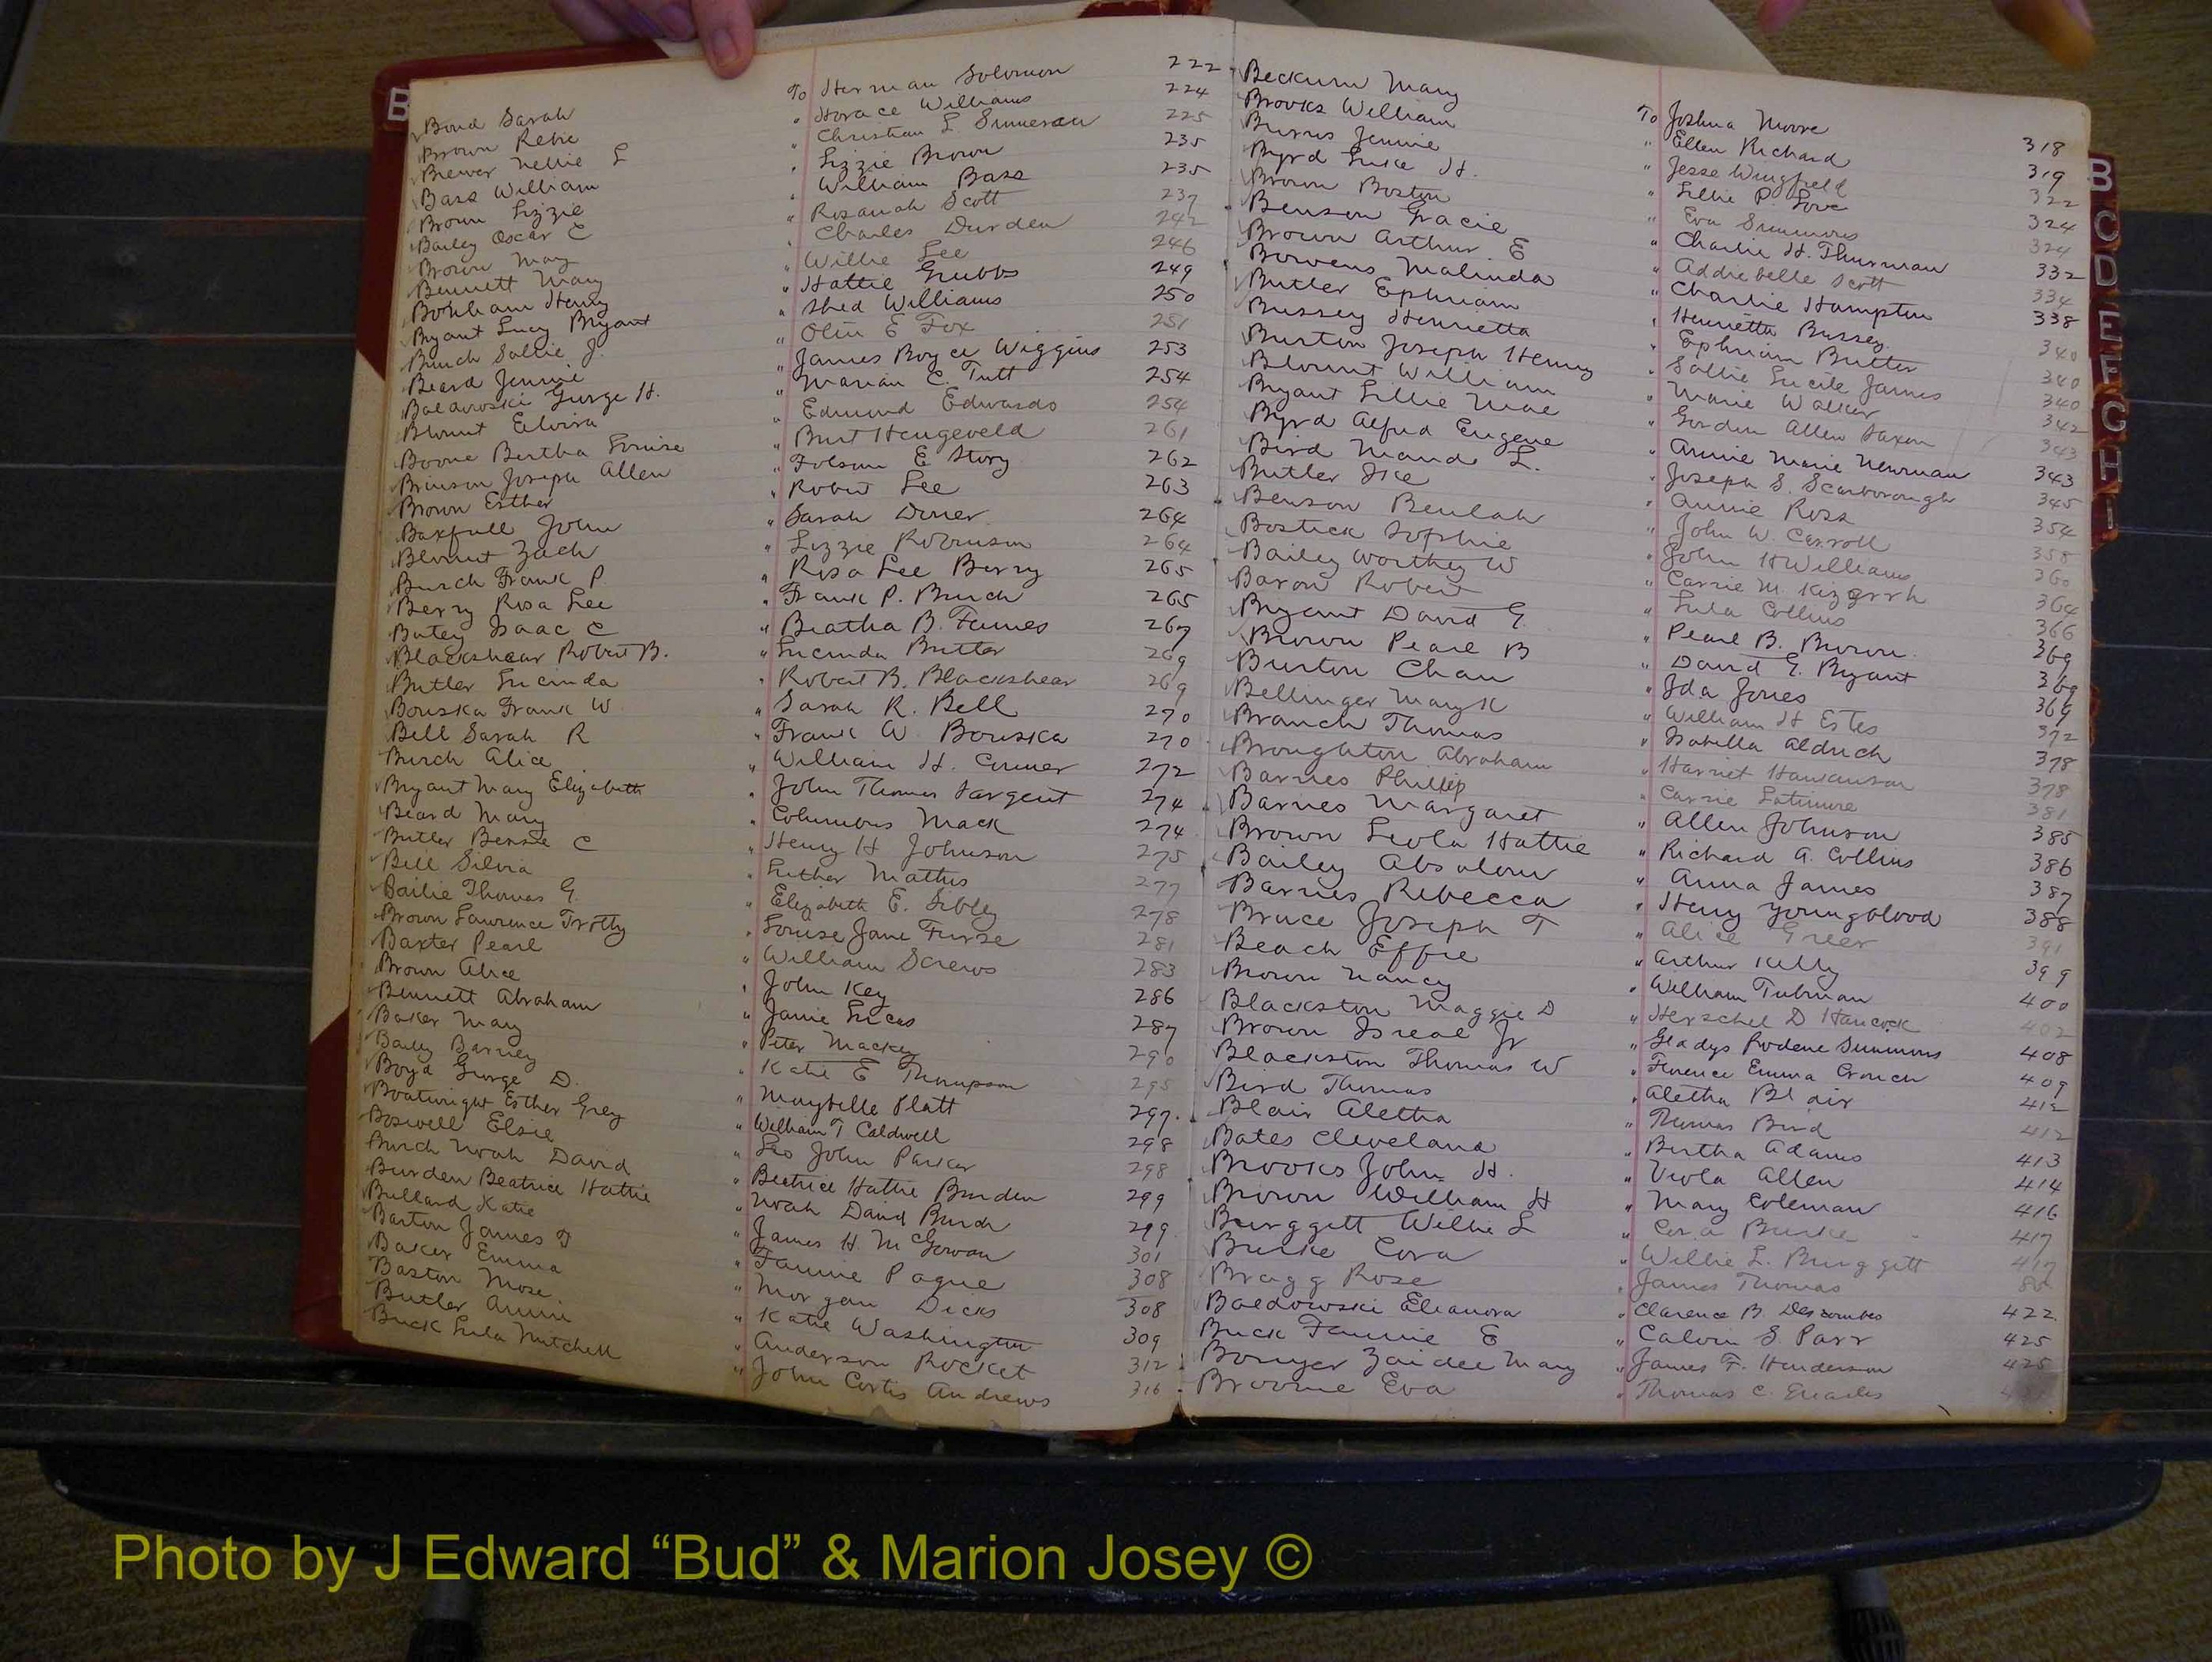 B
Bond Sarah To Herman Solomon 222
Brown Rebie " Horace Williams 224
Brewer Nellie L " Christian L 225
Bass William " Lizzie Brown 235
Brown Lizzie " William Bass 235
Bailey Oscar E " Rosanah Scott 237
Brown May " Charles Durden 242
Bennett Mary " Willie Lee 246
Bonham Henry " Hattie Grubbs 249
Bryant Lucy Bryant " Shed Williams 250
Bunch Sallie J. " Olin E Fox 251
Beard Jennie " James Boyce Wiggins 253
Baldowski George H. " Marian C. Tutt 254
Blount Elvira " Edmund Edwards 254
Boone Bertha Louise " Burt Hengeveld 261
Brinson Joseph Allen " Folsom E Story 262
Brown Esther " Robert Lee 263
Baxfull John " Sarah Diner 264
Blount Zach " Lizzie Robinson 264
Burch Frank P. " Rosa Lee Berry 265
Berry Rosa Lee " Frank P. Burch 265
Batey Isaac C " Beatha B. 267
Blackshear Robert B. " Lucinda Butler 269
Butler Lucinda " Robert B. Blackshear 269
Bouska Frank W " Sarah R. Bell 270
Bell Sarah R " Frank W Bouska 270
Burch Alice " William H. Conner 272
Bryant Mary Elizabeth " John Thomas Sargent 274
Beard Mary " Columbus Mack 274
Butler Bessie C " Henry H Johnson 275
Bell Silvia " Luther Mathis 277
Bailie Thomas G. " Elizabeth E. Sibley 278
Brown Lawrence Trotty " Louise Jane Furse 281
Baxter Pearl " William Screws 283
Brown Alice " John Key 286
Bennett Abraham " Janie Lucas 287
Baker Mary " Peter Mackey 290
Baily Barney " Katie E Thompson 295
Boyd George D. " Maybelle Platt 297.
Boatwright Esther Grey " William T Caldwell 298
Boswell Elsie " Leo John Parker 298
Burch Noah David " Beatrice Hattie Burden 299
Burden Beatrice Hattie " Noah David Burch 299
Bullard Katie " James H. McGowan 301
Barton James D " Fannie Pague 308
Baker Emma " Morgan Dicks 308
Baston Mose. " Katie Washington 309
Butler Annie " Anderson Rocket 312
Buck Lula Mitchell " John Curtis Andrews 316
Beckum Mary To Joshua Moore 318
Brooks William " Ellen Richard 319
Burns Jennie " Jesse Wingfield 322
Byrd Luke H. " Lillie P. Love 324
Brown Boston " Eva Simmons 324
Benson Gracie " Charlie H. Thurman 332
Brown Arthur E " Addiebelle Scott 334
Bowens Malinda " Charlie Hampton 338
Butler Ephriam " Henrietta Bussey. 340
Bussey Henrietta " Ephriam Butler 340
Burton Joseph Henry " Sallie Lucile James 340
Blount William " Marie Walker 342
Bryant Lillie Mae " Gordon Allen Saxon 343
Byrd Alfred Eugene " Annie Marie Newman 343
Bird Maude L. " Joseph S. Scarborough 345
Butler Ike " Annie Ross 354
Benson Beulah " John W. Carroll 358
Bostick Sophie " John H Williams 360
Bailey Worthey W " Carrie M. 364
Baron Robert " Lula Collins 366
Bryant David G. " Pearl B. Brown. 369
Brown Pearl B " David G. Bryant 369
Burton Chan " Ida Jones 369
Bellinger Mary K " William H Estes 372
Branch Thomas " Isabella Aldrich 378
Broughton Abraham " Harriet Hankinson 378
Barnes Phillip " Carrie Latimore 381
Barnes Margaret " Allen Johnson 385
Brown Leola Hattie " Richard A. Collins 386
Bailey Absolom " Anna James 387
Barnes Rebecca " Henry Youngblood 388
Bruce Joseph T " Alice Greer 391
Beach Effie " Arthur Kelly 399
Brown Nancy " William Tubman 400
Blackston Maggie D " Herschel D Hancock 402
Brown Isreal Jr " Gladys Rodene Simmons 408
Blackston Thomas W " Florence Emma Crouch 409
Bird Thomas " Aletha Blair 412
Blair Aletha " Thomas Bird 412
Bates Cleveland " Bertha Adams 413
Brooks John H. " Viola Allen 414
Brown William H " Mary Coleman 416
Burggett Willie L " Cora Burke 417
Burke Cora " Willie L. Burggett 417
Bragg Rose " James Thomas
Baldowski Eleanora " Clarence B. Descombes 422
Buck Fannie E " Calvin S. Parr 425
Bouyer Zaidee Mary " James F. Henderson 425
Broome Eva " Thomas C. Quarles
B
C
D
E
F
G
H
I
Photo by J Edward “Bud” & Marion Josey ©